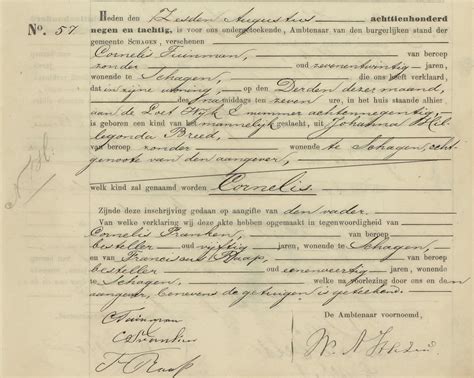 No. 57
Heden den Zesden Augustus achttienhonderd
negen en tachtig, is voor ons ondergeteekende, Ambtenaar van den burgerlijken stand der
gemeente SCHAGEN, verschenen
Cornelis Tuinman, van beroep
zonder oud zevenentwintig jaren,
wonende te Schagen, die ons heeft verklaard,
dat in zijne woning, op den Derden dezer maand,
des namiddags ten zeven ure, in het huis staande alhier
aan de Loet Wijk E nummer achtennegentig,
is geboren een kind van het mannelijk geslacht, uit Johanna Hil
legonda Breed,
van beroep zonder wonende te Schagen, echt
genoote van den aangever,
welk kind zal genaamd worden Cornelis.
Zijnde deze inschrijving gedaan op aangifte van den vader.
Van welke verklaring wij deze akte hebben opgemaakt in tegenwoordigheid van
Cornelis Franken, van beroep
besteller oud vijftig jaren, wonende te Schagen,
en van Franciscus Raap, van beroep
besteller oud eenenveertig jaren, wonende te
Schagen, welke na voorlezing door ons en den
aangever, benevens de getuigen is geteekend.
De Ambtenaar voornoemd,
C Tuinman
C Franken
F Raap